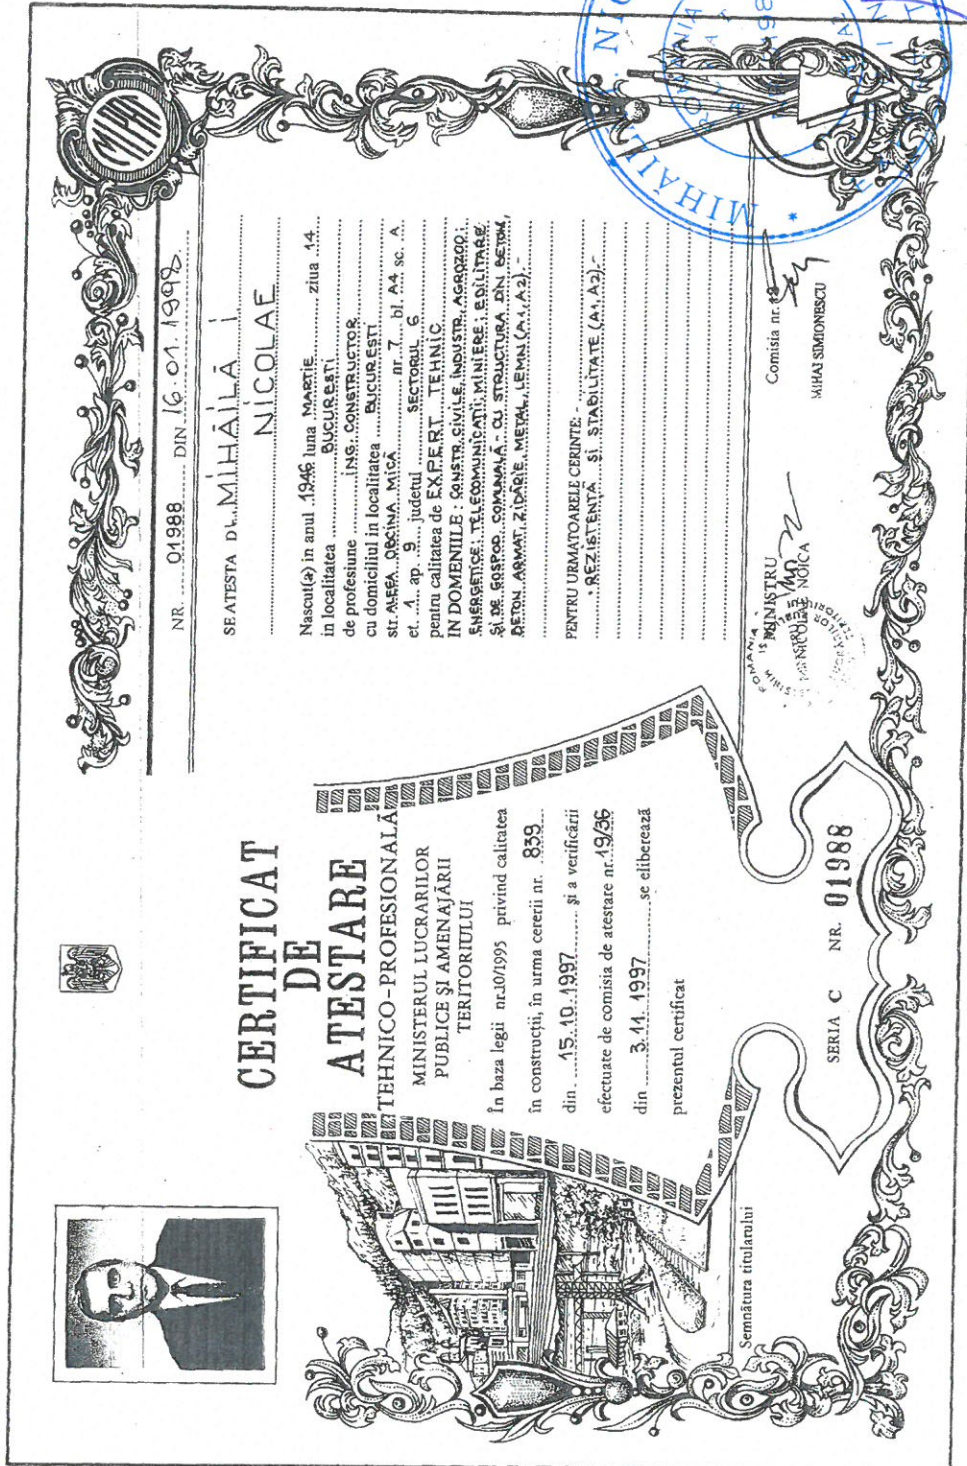 CERTIFICAT
DE
ATESTARE
TEHNICO-PROFESIONALĂ
MINISTERUL LUCRARILOR
PUBLICE ŞI AMENAJĂRII
TERITORIULUI
În baza legii nr.10/1995 privind calitatea
în construcţii, în urma cererii nr. 839
din 15.10.1997 şi a verificării
efectuate de comisia de atestare nr. 19/36
din 3.11.1997 se eliberează
prezentul certificat
Semnătura titularului
SERIA C NR. 01988
MLPAT
NR. 01988 DIN 16.01.1998
SE ATESTA
MIHĂILĂ I.
NICOLAE
Nascut(a) in anul 1946 luna MARTIE ziua 14
in localitatea BUCUREŞTI
de profesiune ING. CONSTRUCTOR
cu domiciliul in localitatea BUCUREŞTI
str. ALEEA OBCINA MICĂ nr. 7 bl. A4 sc. A
et. 1 ap. 9 judetul SECTORUL 6
pentru calitatea de EXPERT TEHNIC
IN DOMENIILE : CONSTR. CIVILE, INDUSTR. AGROZOO;
ENERGETICE; TELECOMUNICAŢII; MINIERE; EDILITARE
ŞI DE GOSPOD. COMUNALĂ - CU STRUCTURA DIN BETON,
BETON ARMAT, ZIDĂRIE, METAL, LEMN (A1, A2).-
PENTRU URMATOARELE CERINTE: -
• REZISTENŢĂ ŞI STABILITATE (A1, A2).-
MINISTRU
NICOLAE NOICA
ROMANIA
Comisia nr.
MIHAI SIMIONESCU
MIHĂILĂ
ROMÂNIA